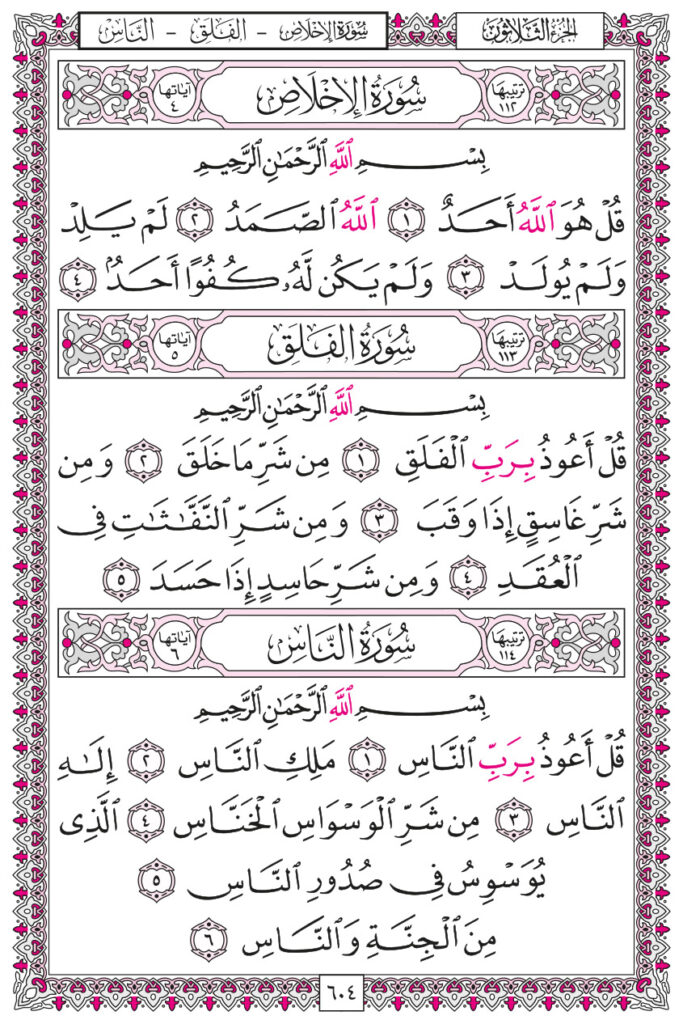 الجزء الثلاثون
سورة الإخلاص - الفلق - الناس
ترتيبها ١١٢ سُورَةُ الإِخْلَاصِ آياتها ٤
بِسْمِ ٱللَّهِ ٱلرَّحْمَٰنِ ٱلرَّحِيمِ
قُلْ هُوَ ٱللَّهُ أَحَدٌ ١ ٱللَّهُ ٱلصَّمَدُ ٢ لَمْ يَلِدْ
وَلَمْ يُولَدْ ٣ وَلَمْ يَكُن لَّهُۥ كُفُوًا أَحَدٌۢ ٤
ترتيبها ١١٣ سُورَةُ الفَلَقِ آياتها ٥
بِسْمِ ٱللَّهِ ٱلرَّحْمَٰنِ ٱلرَّحِيمِ
قُلْ أَعُوذُ بِرَبِّ ٱلْفَلَقِ ١ مِن شَرِّ مَا خَلَقَ ٢ وَمِن
شَرِّ غَاسِقٍ إِذَا وَقَبَ ٣ وَمِن شَرِّ ٱلنَّفَّٰثَٰتِ فِى
ٱلْعُقَدِ ٤ وَمِن شَرِّ حَاسِدٍ إِذَا حَسَدَ ٥
ترتيبها ١١٤ سُورَةُ النَّاسِ آياتها ٦
بِسْمِ ٱللَّهِ ٱلرَّحْمَٰنِ ٱلرَّحِيمِ
قُلْ أَعُوذُ بِرَبِّ ٱلنَّاسِ ١ مَلِكِ ٱلنَّاسِ ٢ إِلَٰهِ
ٱلنَّاسِ ٣ مِن شَرِّ ٱلْوَسْوَاسِ ٱلْخَنَّاسِ ٤ ٱلَّذِى
يُوَسْوِسُ فِى صُدُورِ ٱلنَّاسِ ٥
مِنَ ٱلْجِنَّةِ وَٱلنَّاسِ ٦
٦٠٤